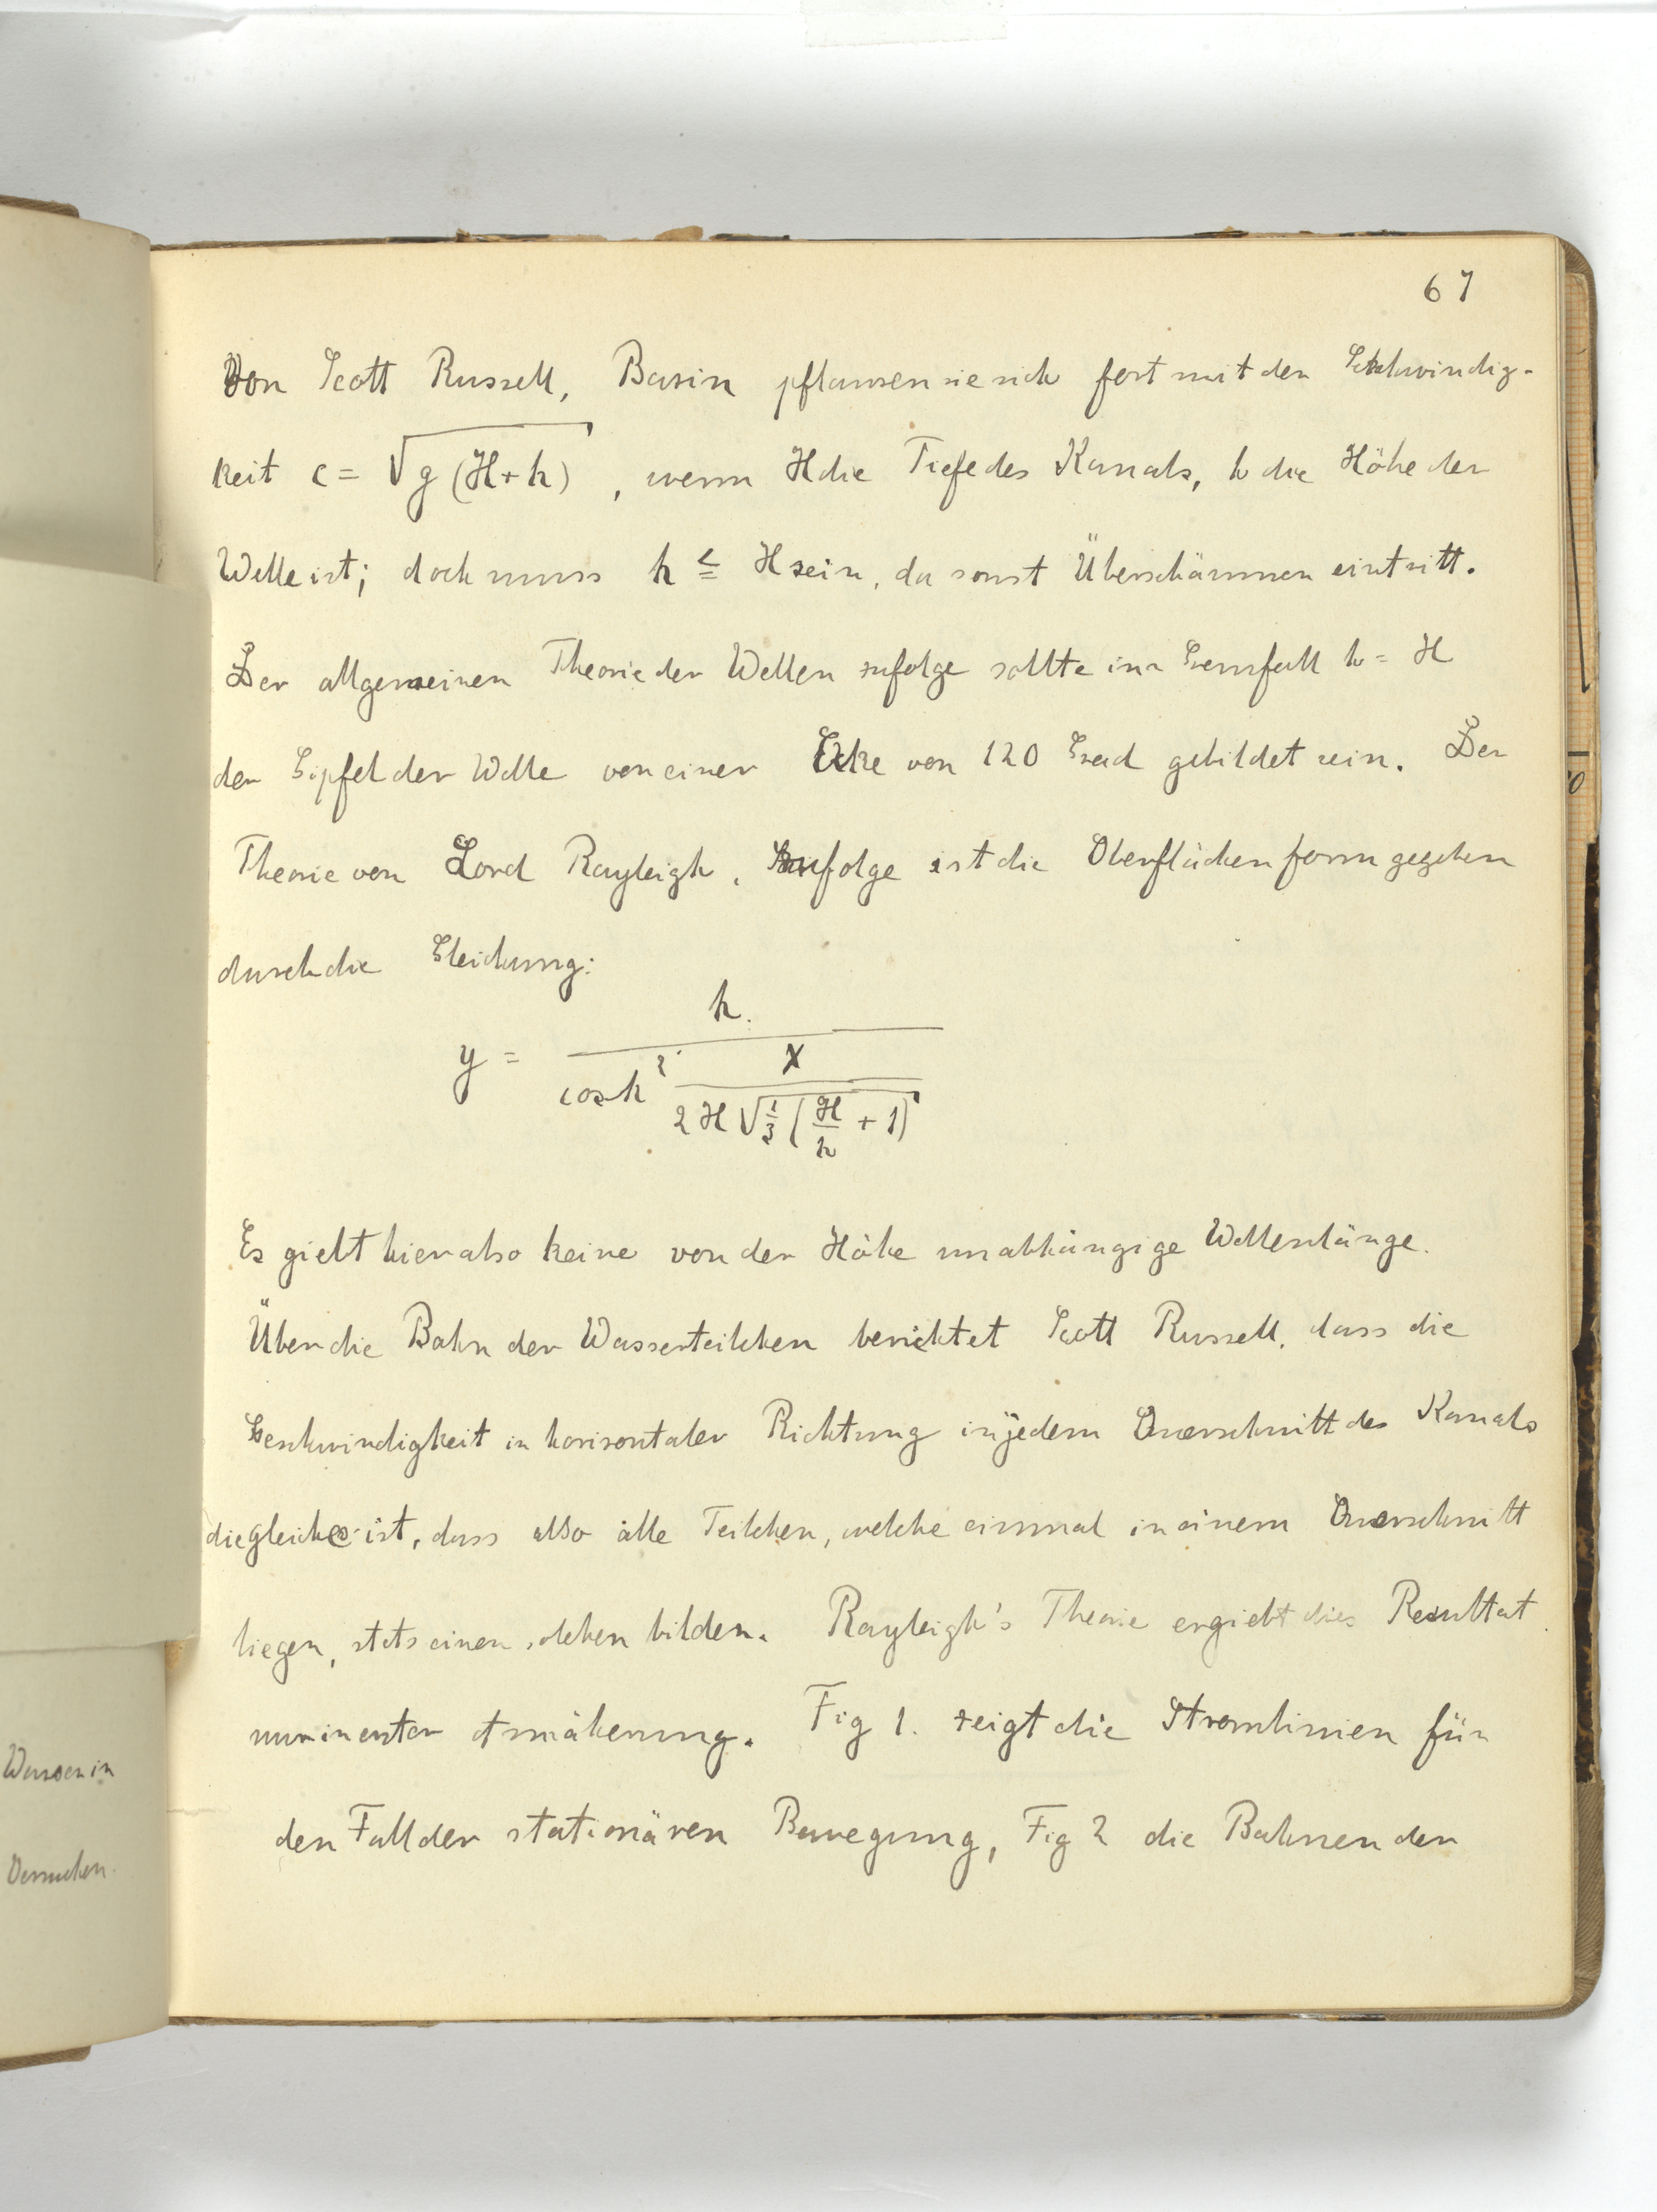 67
Von Scott Russell, Basin pflanzen sie sich fort mit der Geschwindig-
keit c = √g(H+h), wenn H die Tiefe des Kanals, h die Höhe der
Welle ist; doch muss h ≦ H sein, da sonst Überschäumen eintritt.
Der allgemeinen Theorie der Wellen zufolge sollte im Grenzfall h = H
der Gipfel der Welle von einer Ecke von 120 Grad gebildet sein. Der
Theorie von Lord Rayleigh, zufolge ist die Oberflächenform gegeben
durch die Gleichung:
y = h / cosh² x / 2H√1/3 (H/h + 1)
Es giebt hier also keine von der Höhe unabhängige Wellenlänge.
Über die Bahn der Wasserteilchen berichtet Scott Russell, dass die
Geschwindigkeit in horizontaler Richtung in jedem Querschnitt des Kanals
die gleiche ist, dass also alle Teilchen, welche einmal in einem Querschnitt
liegen, stets einen solchen bilden. Rayleigh's Theorie ergiebt dies Resultat
nur in erster Annäherung. Fig 1. zeigt die Stromlinien für
den Fall der stationären Bewegung, Fig 2 die Bahnen der
Wasser in
Versuchen.